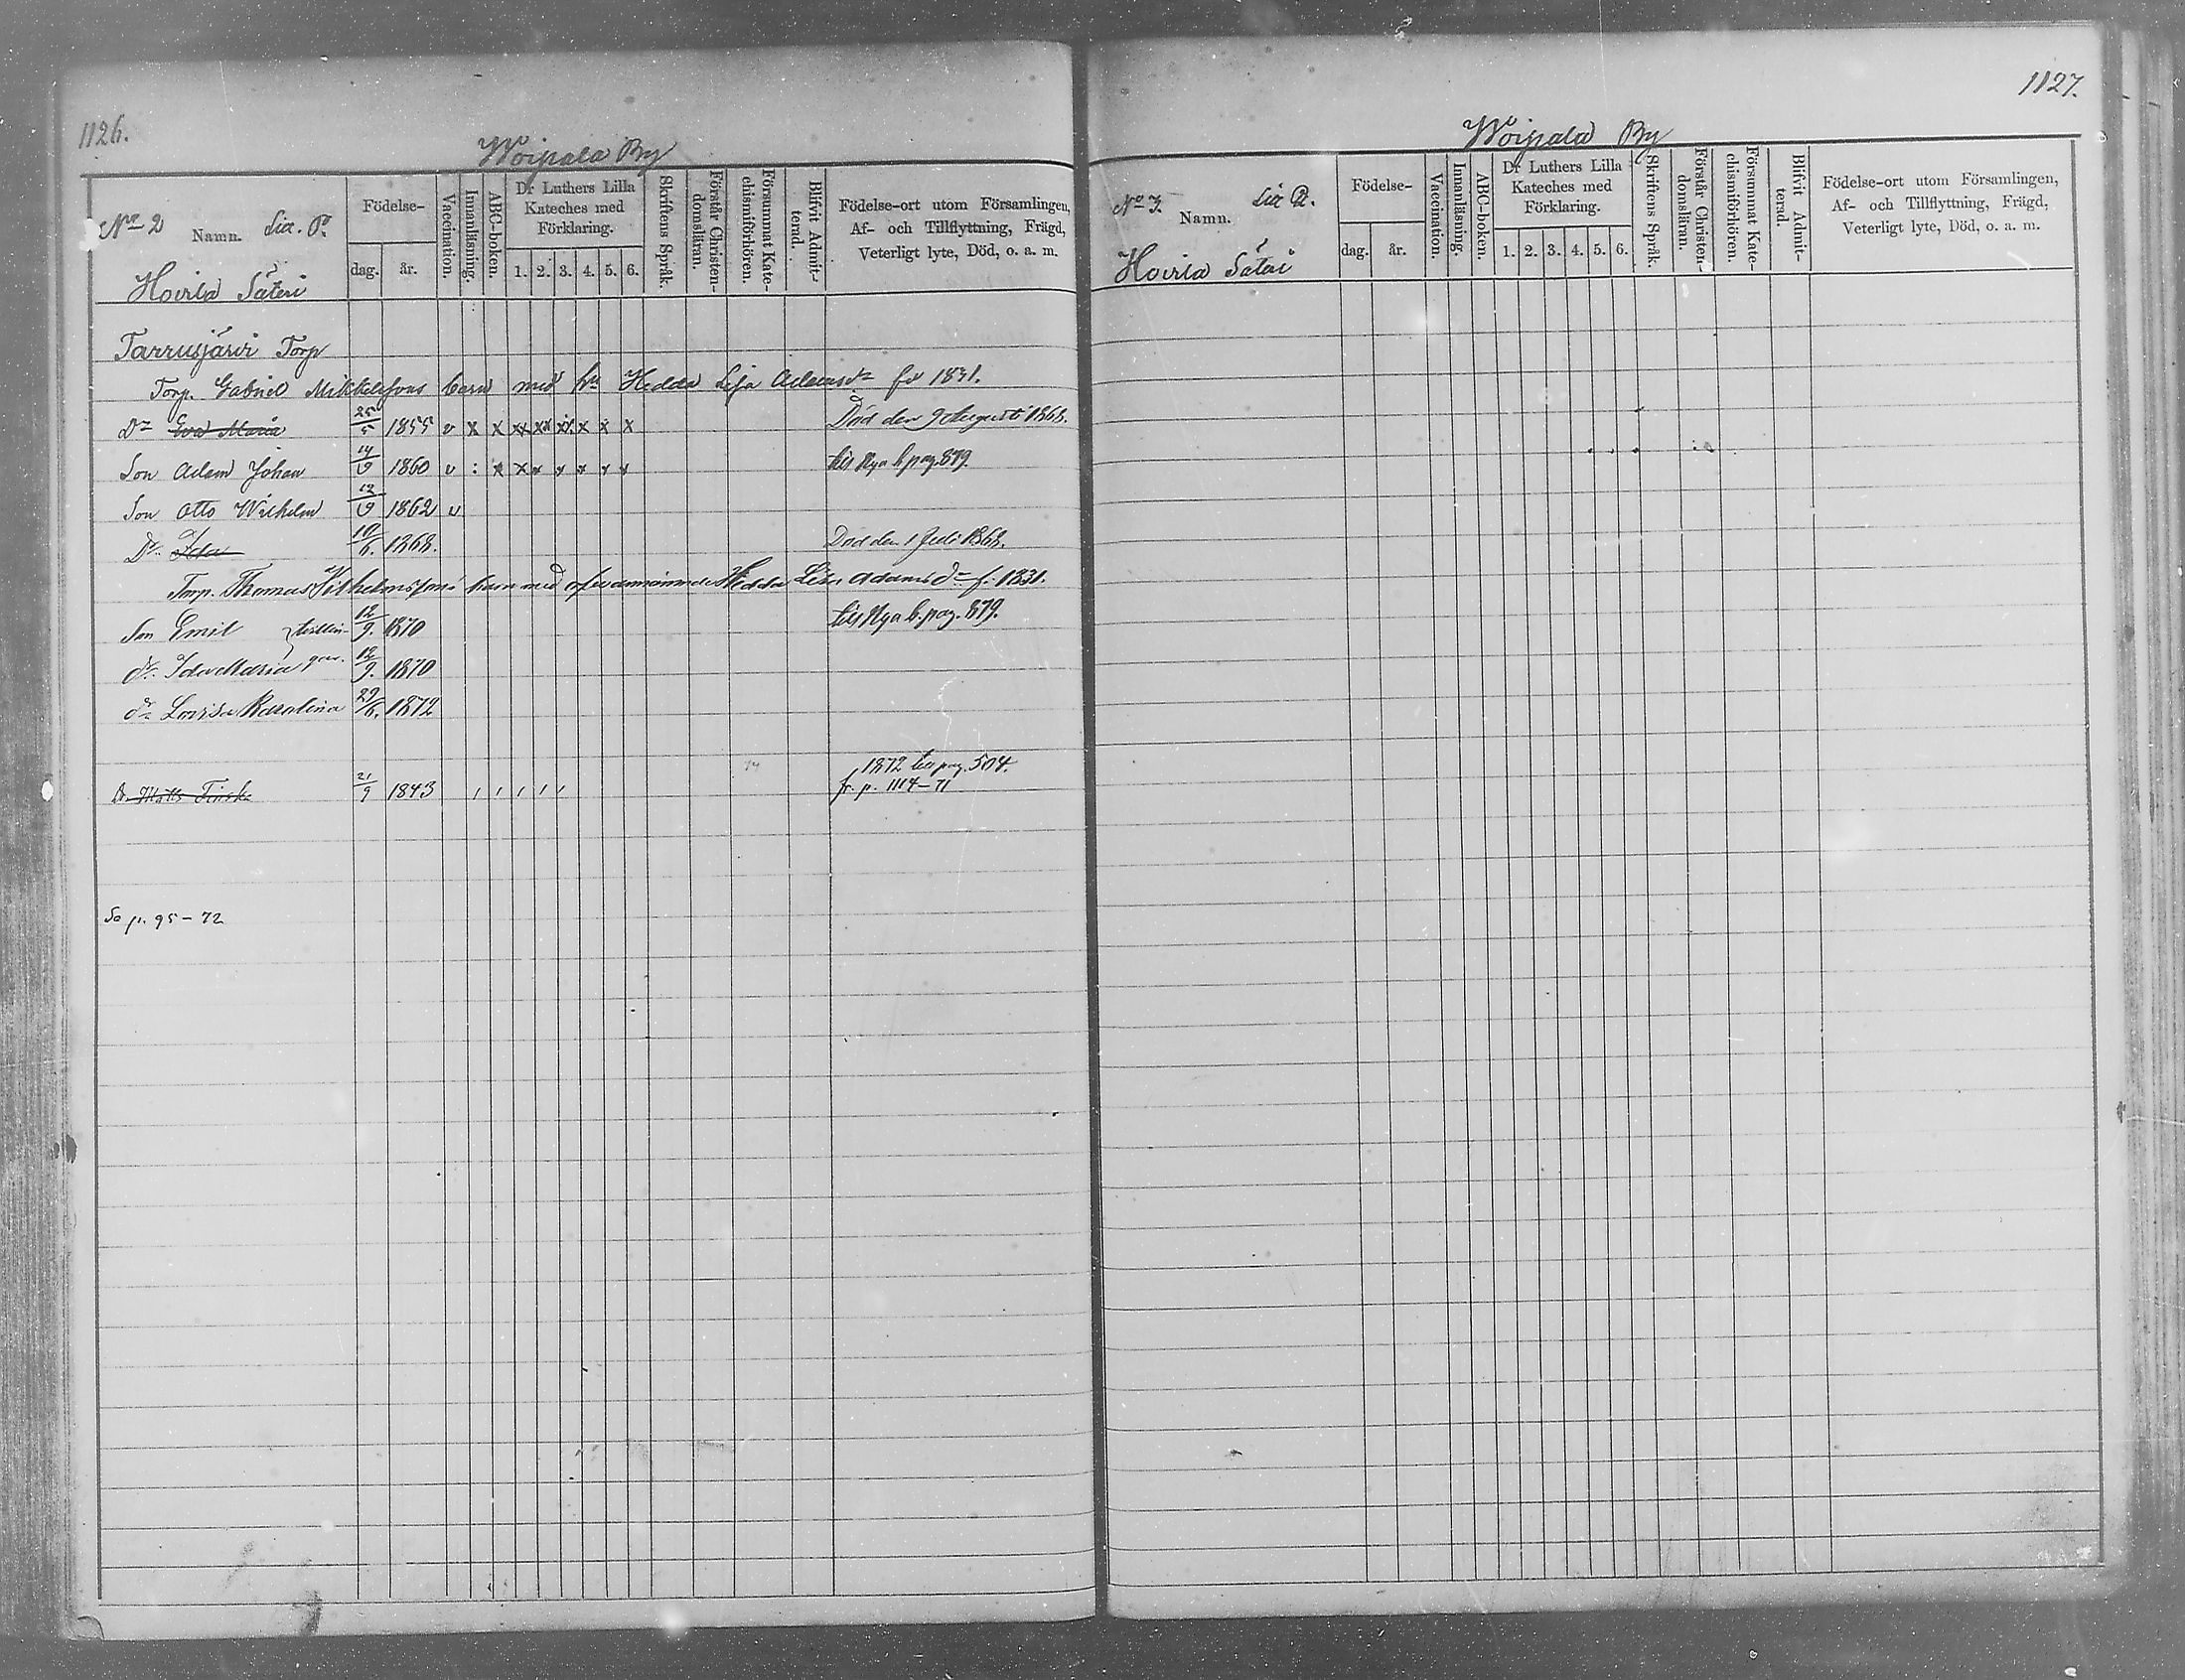 1126.
Woipala By
No 2 Namn. Litt. P.
Födelse-
dag. år.
Vaccination.
Innanläsning.
ABC-boken.
Dr Luthers Lilla Kateches med Förklaring.
1. 2. 3. 4. 5. 6.
Skriftens Språk.
Förstår Christendomsläran.
Försummat Katechismiförhören.
Blifvit Admitterad.
Födelse-ort utom Församlingen,
Af- och Tillflyttning, Frägd,
Veterligt lyte, Död, o. a. m.
Hoirla Säteri
Tarrusjärvi Torp
Torp. Gabriel Mikkelssons barn med hu Hedda Lisa Adamsdr fö 1831.
Dr Eva Maria 25/5 1855 v x x xx xx xx x x x Död den 9 Augusti 1868.
Son Adam Johan 14/9 1860 v : x x x x x x x till Nya b. pag. 879.
Son Otto Wilhelm 12/9 1862 v
Dr. Ida 10/6. 1868. Död den 1 Juli 1868.
Torp. Thomas Wilhelmssons barn med ofvannämnde Hedda Lisa Adamsdr f. 1831.
Son Emil 12/9. 1870 till Nya b. pag. 879.
dr. Ida Maria 12/9. 1870
dr Lovisa Karolina 29/6. 1872
1872 till pag. 504.
Dr Matts Finska 21/9 1843 fr. p. 1114-71
Se p. 95-72
1127.
Woipala By
No 3. Namn. Litt P.
Födelse-
dag. år.
Vaccination.
Innanläsning.
ABC-boken.
Dr Luthers Lilla Kateches med Förklaring.
1. 2. 3. 4. 5. 6.
Skriftens Språk.
Förstår Christendomsläran.
Försummat Katechismiförhören.
Blifvit Admitterad.
Födelse-ort utom Församlingen,
Af- och Tillflyttning, Frägd,
Veterligt lyte, Död, o. a. m.
Hoirla Säteri